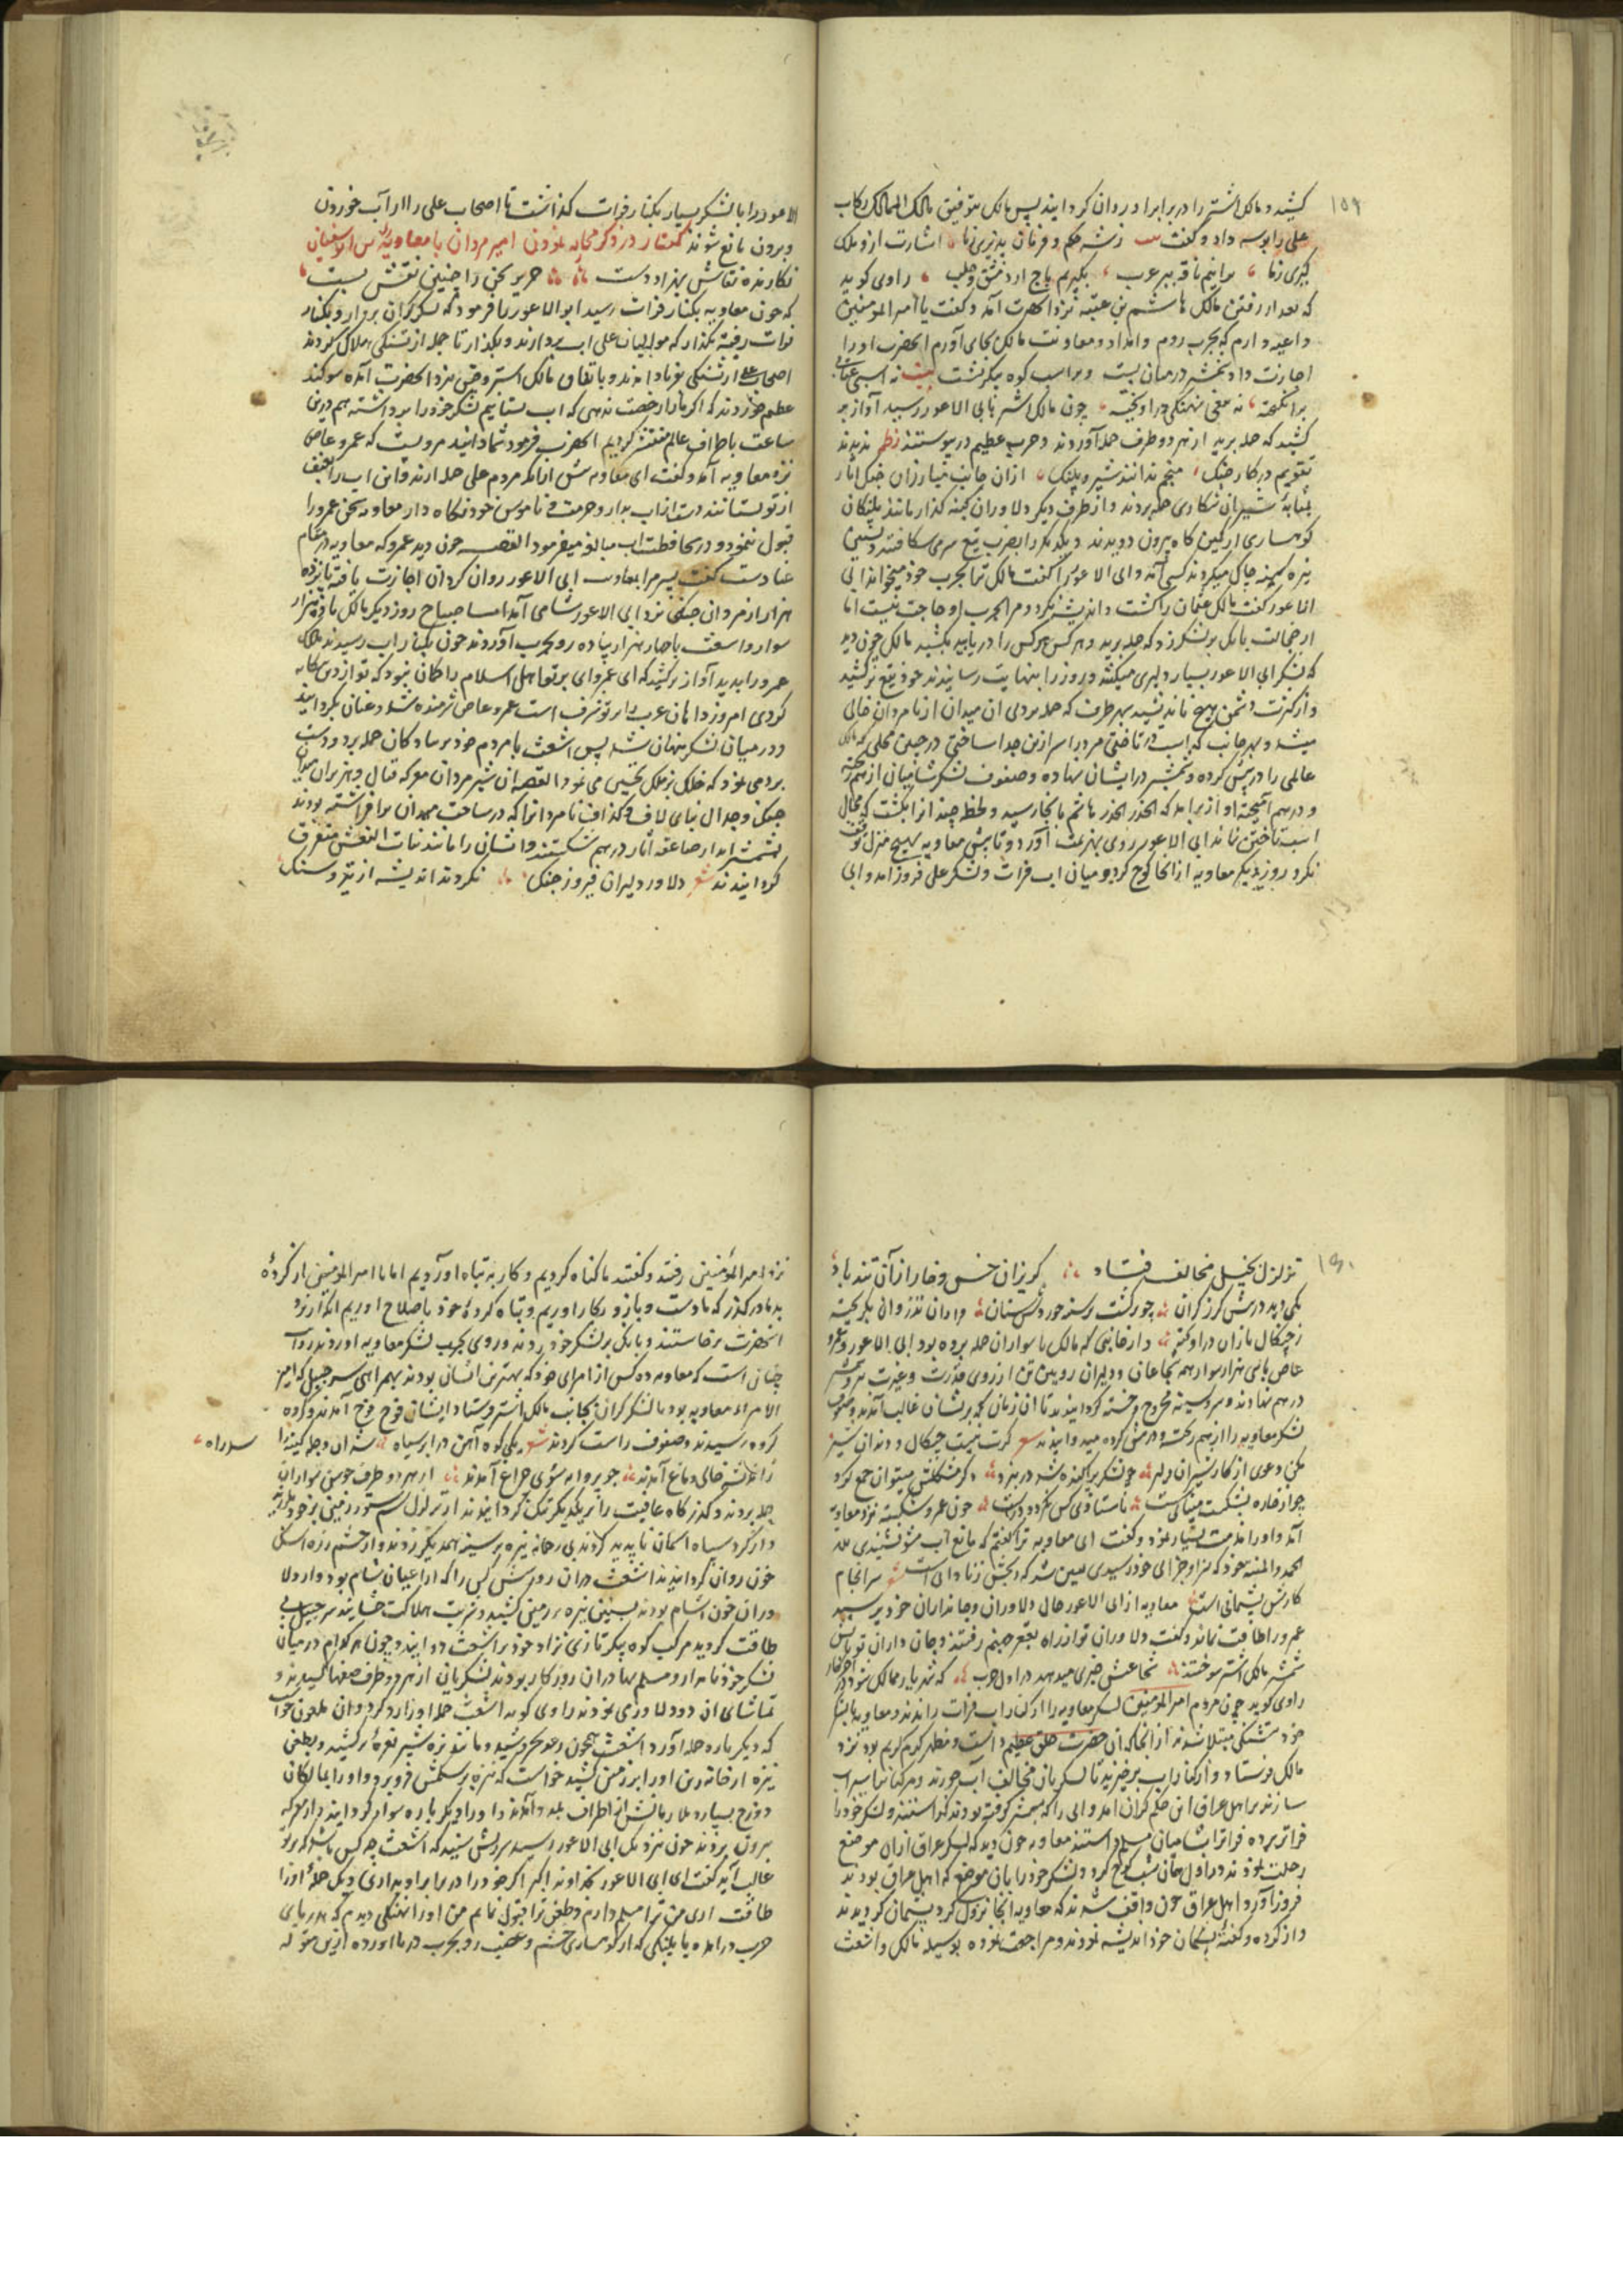 ۱۵۹
کشید و مالک اشتر را در برابر او روان کردانید پس مالک بتوفیق مالک الممالک رکاب
علی را بوسه داد و کفت زشه حکم و فرمان پذیری زما اشارت ازو ملک
کیری زما برانیم ناقه ببر عرب بکیریم باج از دمشق و حلب راوی کوید
که بعد از رفتن مالک هاشم بن عتبه نزد آنحضرت آمد و کفت یا امیرالمومنین
داعیه دارم که بحرب روم و امداد و معاونت مالک بجای آورم آنحضرت او را
اجازت داد شمشیر در میان بست و بر اسب کوه پیکر نشست بیت نه اسبی عقابی
برانکیخته نه تیغی نهنکی در آویخته چون مالک اشتر بابی الاعور رسید آواز بر
کشید که حمله برید از هر دو طرف حمله آوردند و حرب عظیم در پیوستند نظم
تقویم در کار جنک منجم ندانند شیر و پلنک ازان جانب مبارزان جنک آثار
بمثابه شیران شکاری حمله بردند و از طرف دیکر دلاوران کینه کذار مانند پلنکان
کوهساری از کمین کاه بیرون دویدند و یکدیکر را بضرب تیغ سر می شکافتند
نیزه سینه چاک میکردند کسی آمد و ابی الاعور را کفت مالک ترا بحرب خود میخواند ابی
الاعور کفت مالک عثمان را کشت و اندیشه نکرد و مرا بحرب او حاجت نیست اما
از خجالت بانک بر لشکر زد که حمله برید و هر کس هر کس را دریابید بکشید مالک چون دید
که لشکر ابی الاعور بسیار دلیری میکنند و روز را بنهایت رسانیدند خود تیغ برکشید
و از کثرت دشمن هیچ نیندیشید بهر طرف که حمله بردی آن میدان از نامردان خالی
میشد و بهر جانب که اسب تاختی مرد را سر از تن جدا ساختی در چنین محلی که مالک
عالمی را در پیش کرده و شمشیر در ایشان نهاده و صفوف لشکر شامیان از هم ریخته
و در هم آمیخته آواز برآمد که الحذر الحذر هاشم بآنجا رسید و لحظه چند آنرا بکشت که مجال
اسب تاختن نماند ابی الاعور روی بهزیمت آورد و تا پیش معاویه بهیچ منزل توقف
نکرد روز دیکر معاویه از آنجا کوچ کرد و میان آب فرات و لشکر علی فرود آمد و ابی
الاعور را با لشکر بسیار بکنار فرات کذاشت تا اصحاب علی را از آب خوردن
و بردن مانع شوند کفتار در ذکر محاربه نمودن امیر مردان با معاویه بن ابوسفیان
نکارنده نقاش بهزاد دست حریر سخن را چنین نقش بست
که چون معاویه بکنار فرات رسید ابوالاعور را فرمود که لشکر کران بردار و بکنار
فرات رفته مکذار که موالیان علی آب بردارند و بکذار تا جمله از تشنکی هلاک کردند
اصحاب علی از تشنکی بفریاد آمدند و باتفاق مالک اشتر و قیس نزد آنحضرت آمده سوکند
عظیم خوردند که اکر ما را رخصت ندهی که آب بستانیم لشکر خود را برداشته هم درین
ساعت باطراف عالم منتشر کردیم آنحضرت فرمود شما دانید مرویست که عمرو عاص
نزد معاویه آمد و کفت ای معاویه پیش ازانکه مردم علی حمله آرند و این آب را بعنف
از تو بستانند دست ازآب بدار و حرمت و ناموس خود نکاه دار معاویه سخن عمرو را
قبول ننمود و در محافظت آب مبالغه میفرمود القصه چون دید عمرو که معاویه در مقام
عنادست کفت پسر مرا بمعاونت ابی الاعور روان کردان اجازت یافته پانزده
هزار از مردان جنکی نزد ابی الاعور شامی آمد اما صباح روز دیکر مالک با نه هزار
سوار و اشعث با چهار هزار پیاده رو بحرب آوردند چون بکنار آب رسیدند مالک
عمرو را بدید آواز برکشید که ای عمرو وای بر تو اهل اسلام را کمان نبود که تو ازدین کناره
کردی امروز دانان عرب را بر تو شرف است عمرو عاص شرمنده شد و عنان بکردانید
و در میان لشکر پنهان شد پس اشعث با مردم خود بر پیادکان حمله برد و دست
بردی نمود که فلک بر ملک تحسین می نمود القصه آن شیر مردان معرکه قتال و هزبران میدان
جنک و جدال بنای لاف و کذاف نامردانرا که در ساحت میدان برافراشته بودند
بشمشیر آبدار صاعقه آثار در هم شکستند و ایشان را مانند بنات النعش متفرق
کردانیدند شعر دلاور دلیران فیروز جنک نکردند اندیشه از تیر و سنک
۱۶۰
تزلزل بخیل مخالف فتاد کریزان خس و خار ازان تند باد
یکی دید در پیش کرز کران چو برکشت برسند خود دلستان
ز چنکال بازان در آویخته در آنجایی که مالک با سواران حمله برده بود ابی الاعور و عمرو
عاص با سی هزار سوار همه شجاعان و دلیران رویین تن از روی قدرت و غیرت
در هم نهادند و سر و سینه مجروح و خسته کردانیدند تا آن زمان که بر ایشان غالب آمدند و صفوف
لشکر معاویه را از هم ریخته و در پیش کرده میدوانیدند شعر کرت نیست چنکال و دندان تیز
مکن دعوی از کار شیران دلیر چو لشکر پراکنده شد در نبرد دکر مشکلش میتوان جمع کرد
چو از خاره بشکست میناکست تا ستادی کس نکردد درست چون عمرو شکسته نزد معاویه
آمد و او را مذمت بسیار نمود و کفت ای معاویه ترا کفتم که مانع آب مشو نشنیدی
الحمد والمنه بخود که سزا و جزای خود رسیدی سرانجام
کارش پشیمانی است معاویه از ابی الاعور حال دلاوران و جانداران خود پرسید
عمرو را طاقت نماند و کفت دلاوران تو از راه بقعر جهنم رفتند و جان داران تو بآتش
شمشیر مالک اشتر سوختند شجاعتش خبری میدهد در اول حرب که شهریار ممالک شود در آخر کار
راوی کوید چون مردم امیرالمومنین لشکر معاویه را از کنار آب فرات راندند و معاویه با لشکر
خود بتشنکی مبتلا شدند ازانجا که آن حضرت خلق عظیم داشت و مظهر کرم کریم بود نزد
مالک فرستاد و از کنار آب برخیزید تا لشکریان مخالف آب خورند و مرکبانرا سیراب
سازند بر اهل عراق این حکم کران آمد و ابی را که بشمشیر کرفته بودند کذاشتند و لشکر خود را
فراتر برده فراتر با شامیان مسلم داشتند معاویه چون دید که لشکر عراق ازان موضع
رحلت نمودند در اول همان شب کوچ کرد و لشکر خود را بآن موضع که اهل عراق بودند
فرود آورد اهل عراق چون واقف شدند که معاویه آنجا نزول کرد پشیمان کردیدند
و از کرده و کفته پشیمان خود اندیشه نمودند و مراجعت نموده بوسیله مالک و اشعث
نزد امیرالمؤمنین رفتند و کفتند ما کناه کردیم و کار به تباه آوردیم اما یا امیرالمؤمنین از کرده
بد ما درکذر که ما دست و بازو بکار آوریم و تباه کرده خود باصلاح آوریم انکه از نزد
آنحضرت برخاستند و بانک بر لشکر خود زدند و روی بحرب لشکر معاویه آوردند روایت
چنان است که معاویه ده کس از امرای خود که بهترین ایشان بودند بهمراهی سرجبیل که امیر
الامراء معاویه بود با لشکر کران بجانب مالک اشتر فرستاد ایشان فوج فوج آمدند و کرده
کروه رسیدند و صفوف راست کردند شعر یکی کوه آهن در ابر سیاه شد آن وجله کینه را سد راه
زاغ خالی دماغ آمدند چو پروانه سوی چراغ آمدند از هر دو طرف جوشن سواران
حمله بردند و کذرکاه عافیت را بر یکدیکر تنک کردانیدند از تزلزل سم ستور زمین بر خود بلرزید
و از کرد سیاه آسمان ناپدید کردند بی رحمانه نیزه بر سینه همدیکر زدند و از چشم زره اشک
خون روان کردانیدند اشعث دران روز شش کس را که از اعیان شام بود و از دلا
وران خون آشام بودند بسنان نیزه بر زمین کشید و شربت هلاکت چشانید سرجبیل بی
طاقت کردید مرکب کوه پیکر تازی نژاد خود بر اشعث دوانید و چون هر کدام در میان
لشکر خود نامدار و مسلم بهادران روزکار بودند لشکریان از هر دو طرف صفها کشیدند و
تماشای آن دو دلاور می نمودند راوی کوید اشعث حمله او را رد کرد و آن ملعون خواست
که دیکر باره حمله آورد اشعث همچون رعد بخروشید و مانند نره شیر نعره برکشید و بطعن
نیزه از خانه زین او را بر زمین کشید خواست که نیزه بر شکمش فرو برد و او را بمالکان
دوزخ بسپارد ملازمانش از اطراف بلند و آمدند و او را دیکر باره سوار کردانیدند از معرکه
بیرون بردند چون نزدیک ابی الاعور رسید پرسش نمود که اشعث چه کس باشد که بر تو
غالب آید کفت ای ابی الاعور بخداوند اکبر اکر خود را در برابر او بداری و یک حمله او را
طاقت آری من ترا مسلم دارم و طعن ترا قبول نمایم من او را نهنکی دیدم که بدریای
حرب درآمده یا پلنکی که از کوهساری خشم و غضب رو بحرب در ما آورده ازین مقوله